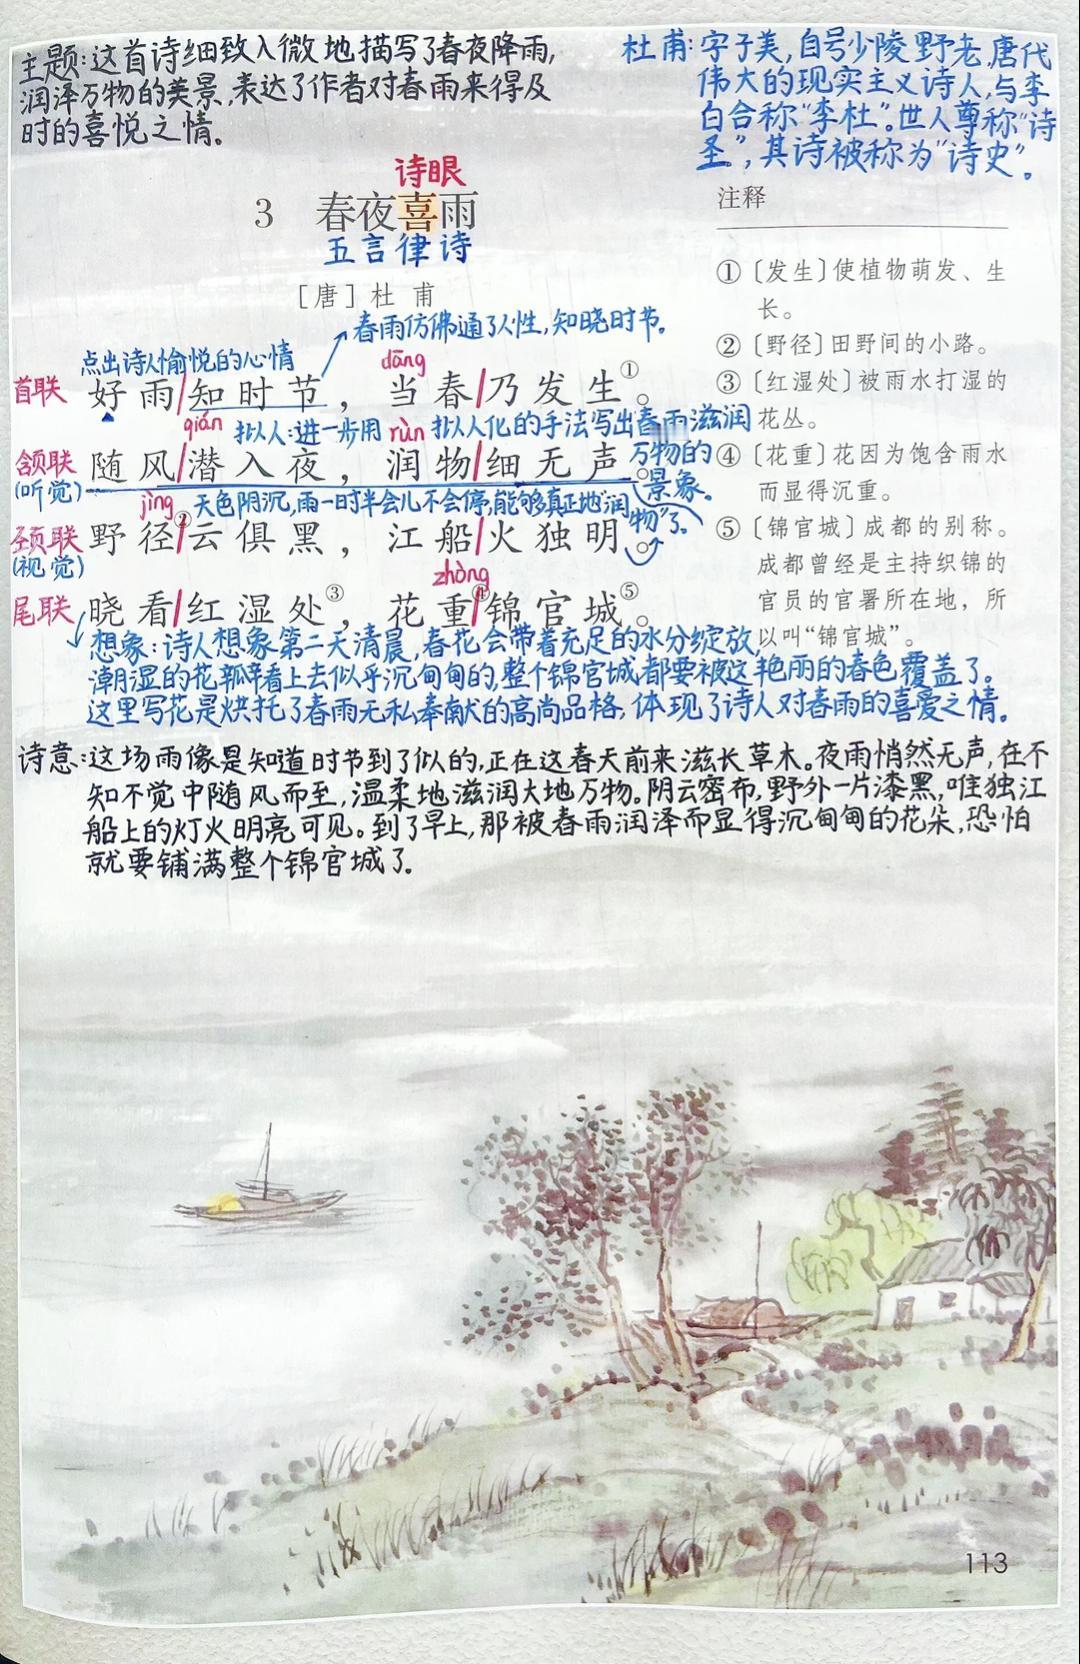 主题:这首诗细致入微地描写了春夜降雨,
润泽万物的美景,表达了作者对春雨来得及
时的喜悦之情。
杜甫:字子美,自号少陵野老,唐代
伟大的现实主义诗人,与李
白合称“李杜”。世人尊称“诗
圣”,其诗被称为“诗史”。
诗眼
3 春夜喜雨
五言律诗
[唐]杜甫
春雨仿佛通了人性,知晓时节。
点出诗人愉悦的心情
dāng
首联 好雨/知时节,当春/乃发生①。
qián 拟人:进一步用 rùn 拟人化的手法写出春雨滋润
万物的
景象。
颔联 随风/潜入夜,润物/细无声。
(听觉)
jìng 天色阴沉,雨一时半会儿不会停,能够真正地“润
物”了。
颈联 野径②/云俱黑,江船/火独明。
(视觉)
zhòng
尾联 晓看/红湿处③,花重④/锦官城⑤。
想象:诗人想象第二天清晨,春花会带着充足的水分绽放,
潮湿的花瓣看上去似乎沉甸甸的,整个锦官城都要被这艳丽的春色覆盖了。
这里写花是烘托了春雨无私奉献的高尚品格,体现了诗人对春雨的喜爱之情。
注释
①〔发生〕使植物萌发、生
长。
②〔野径〕田野间的小路。
③〔红湿处〕被雨水打湿的
花丛。
④〔花重〕花因为饱含雨水
而显得沉重。
⑤〔锦官城〕成都的别称。
成都曾经是主持织锦的
官员的官署所在地,所
以叫“锦官城”。
诗意:这场雨像是知道时节到了似的,正在这春天前来滋长草木。夜雨悄然无声,在不
知不觉中随风而至,温柔地滋润大地万物。阴云密布,野外一片漆黑,唯独江
船上的灯火明亮可见。到了早上,那被春雨润泽而显得沉甸甸的花朵,恐怕
就要铺满整个锦官城了。
113